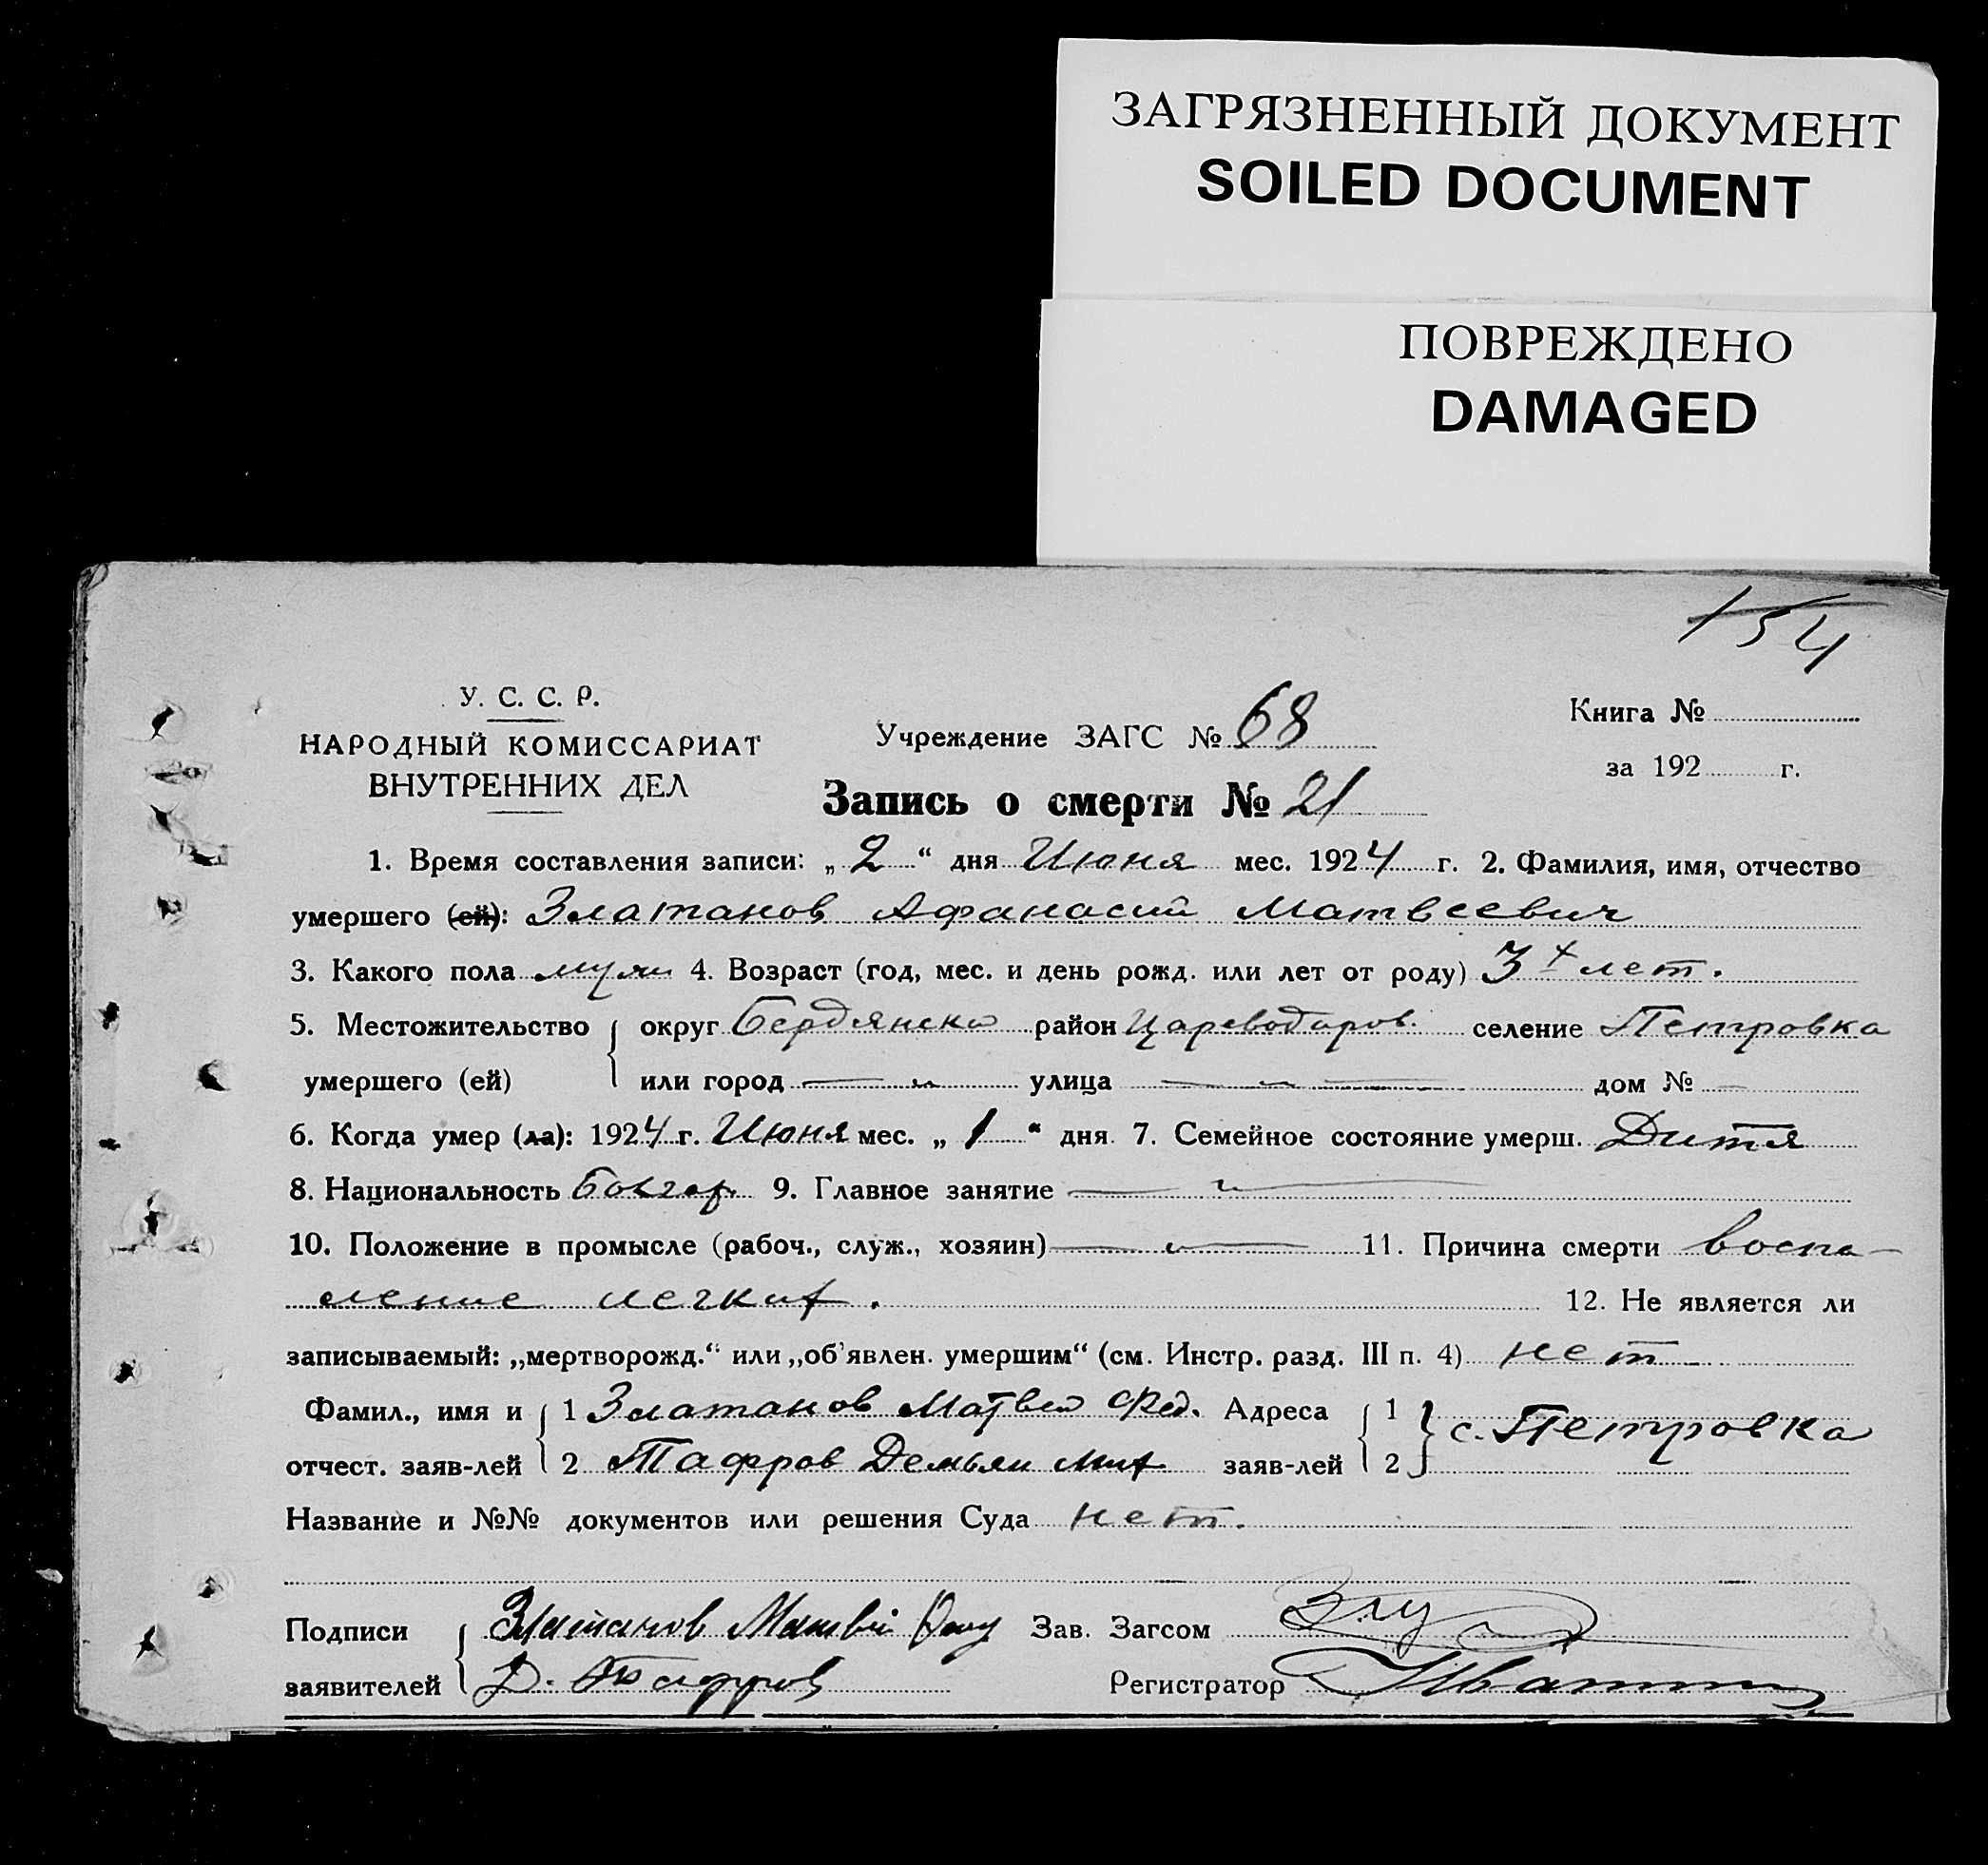 ЗАГРЯЗНЕННЫЙ ДОКУМЕНТ
SOILED DOCUMENT
ПОВРЕЖДЕНО
DAMAGED
154
У. С. С. Р.
НАРОДНЫЙ КОМИССАРИАТ
ВНУТРЕННИХ ДЕЛ
Учреждение ЗАГС № 68
Книга №
за 192 г.
Запись о смерти № 21
1. Время составления записи: „ 2 “ дня Июня мес. 1924 г. 2. Фамилия, имя, отчество
умершего (ей): Златанов Афанасий Матвеевич
3. Какого пола муж 4. Возраст (год, мес. и день рожд. или лет от роду) 3х лет.
5. Местожительство округ Бердянски район Цареводаров. селение Петровка
умершего (ей) или город — „ улица — „ — дом № —
6. Когда умер (ла): 1924 г. Июня мес. „ 1 “ дня 7. Семейное состояние умерш. Дитя
8. Национальность болгар. 9. Главное занятие — „ —
10. Положение в промысле (рабоч., служ., хозяин) — „ — 11. Причина смерти воспа-
ление легких. 12. Не является ли
записываемый: „мертворожд.“ или „об'явлен. умершим“ (см. Инстр. разд. III п. 4) нет
Фамил., имя и 1 Златанов Матвей Фед. Адреса 1 с. Петровка
отчест. заяв-лей 2 Тафров Демьян Мих заяв-лей 2
Название и №№ документов или решения Суда нет.
Подписи Златанов Матвей Зав. Загсом
заявителей Д. Тафров Регистратор